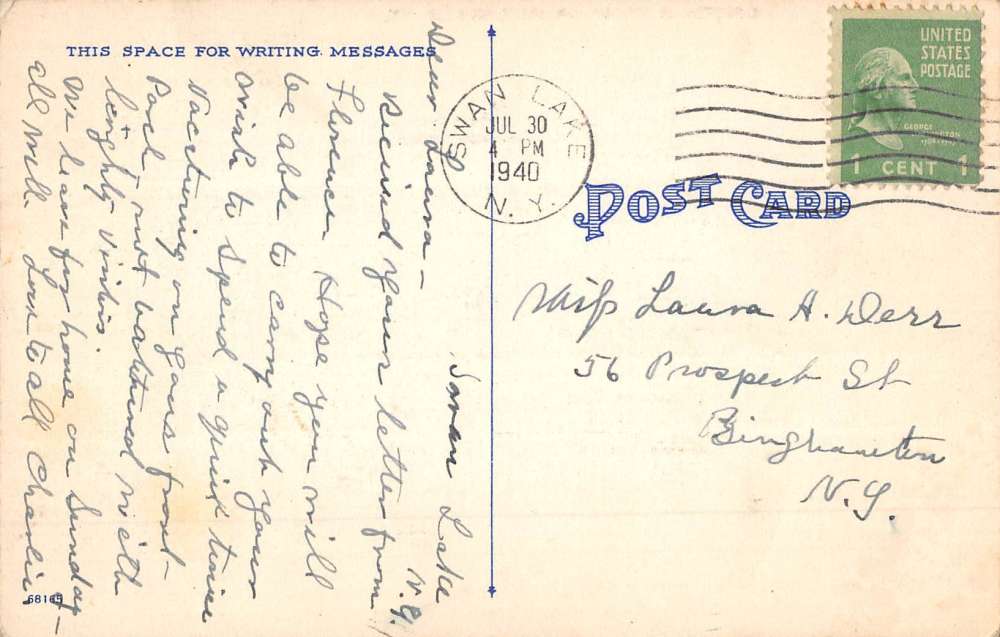 THIS SPACE FOR WRITING MESSAGES
Swan Lake
N.Y.
Dear Laura –
Recieved your letter from
Florence Hope you will
be able to carry out your
wish to spend a quiet time
Vactioning on your front –
Porch + not bothered with
lenghty visitors.
We leave for home on Sunday –
all well. Love to all Charlie
68165
SWAN LAKE
N.Y.
JUL 30
4 PM
1940
UNITED
STATES
POSTAGE
GEORGE
WASHINGTON
1 CENT 1
POST CARD
Miss Laura A. Derr
56 Prospect St
Binghamton
N.Y.